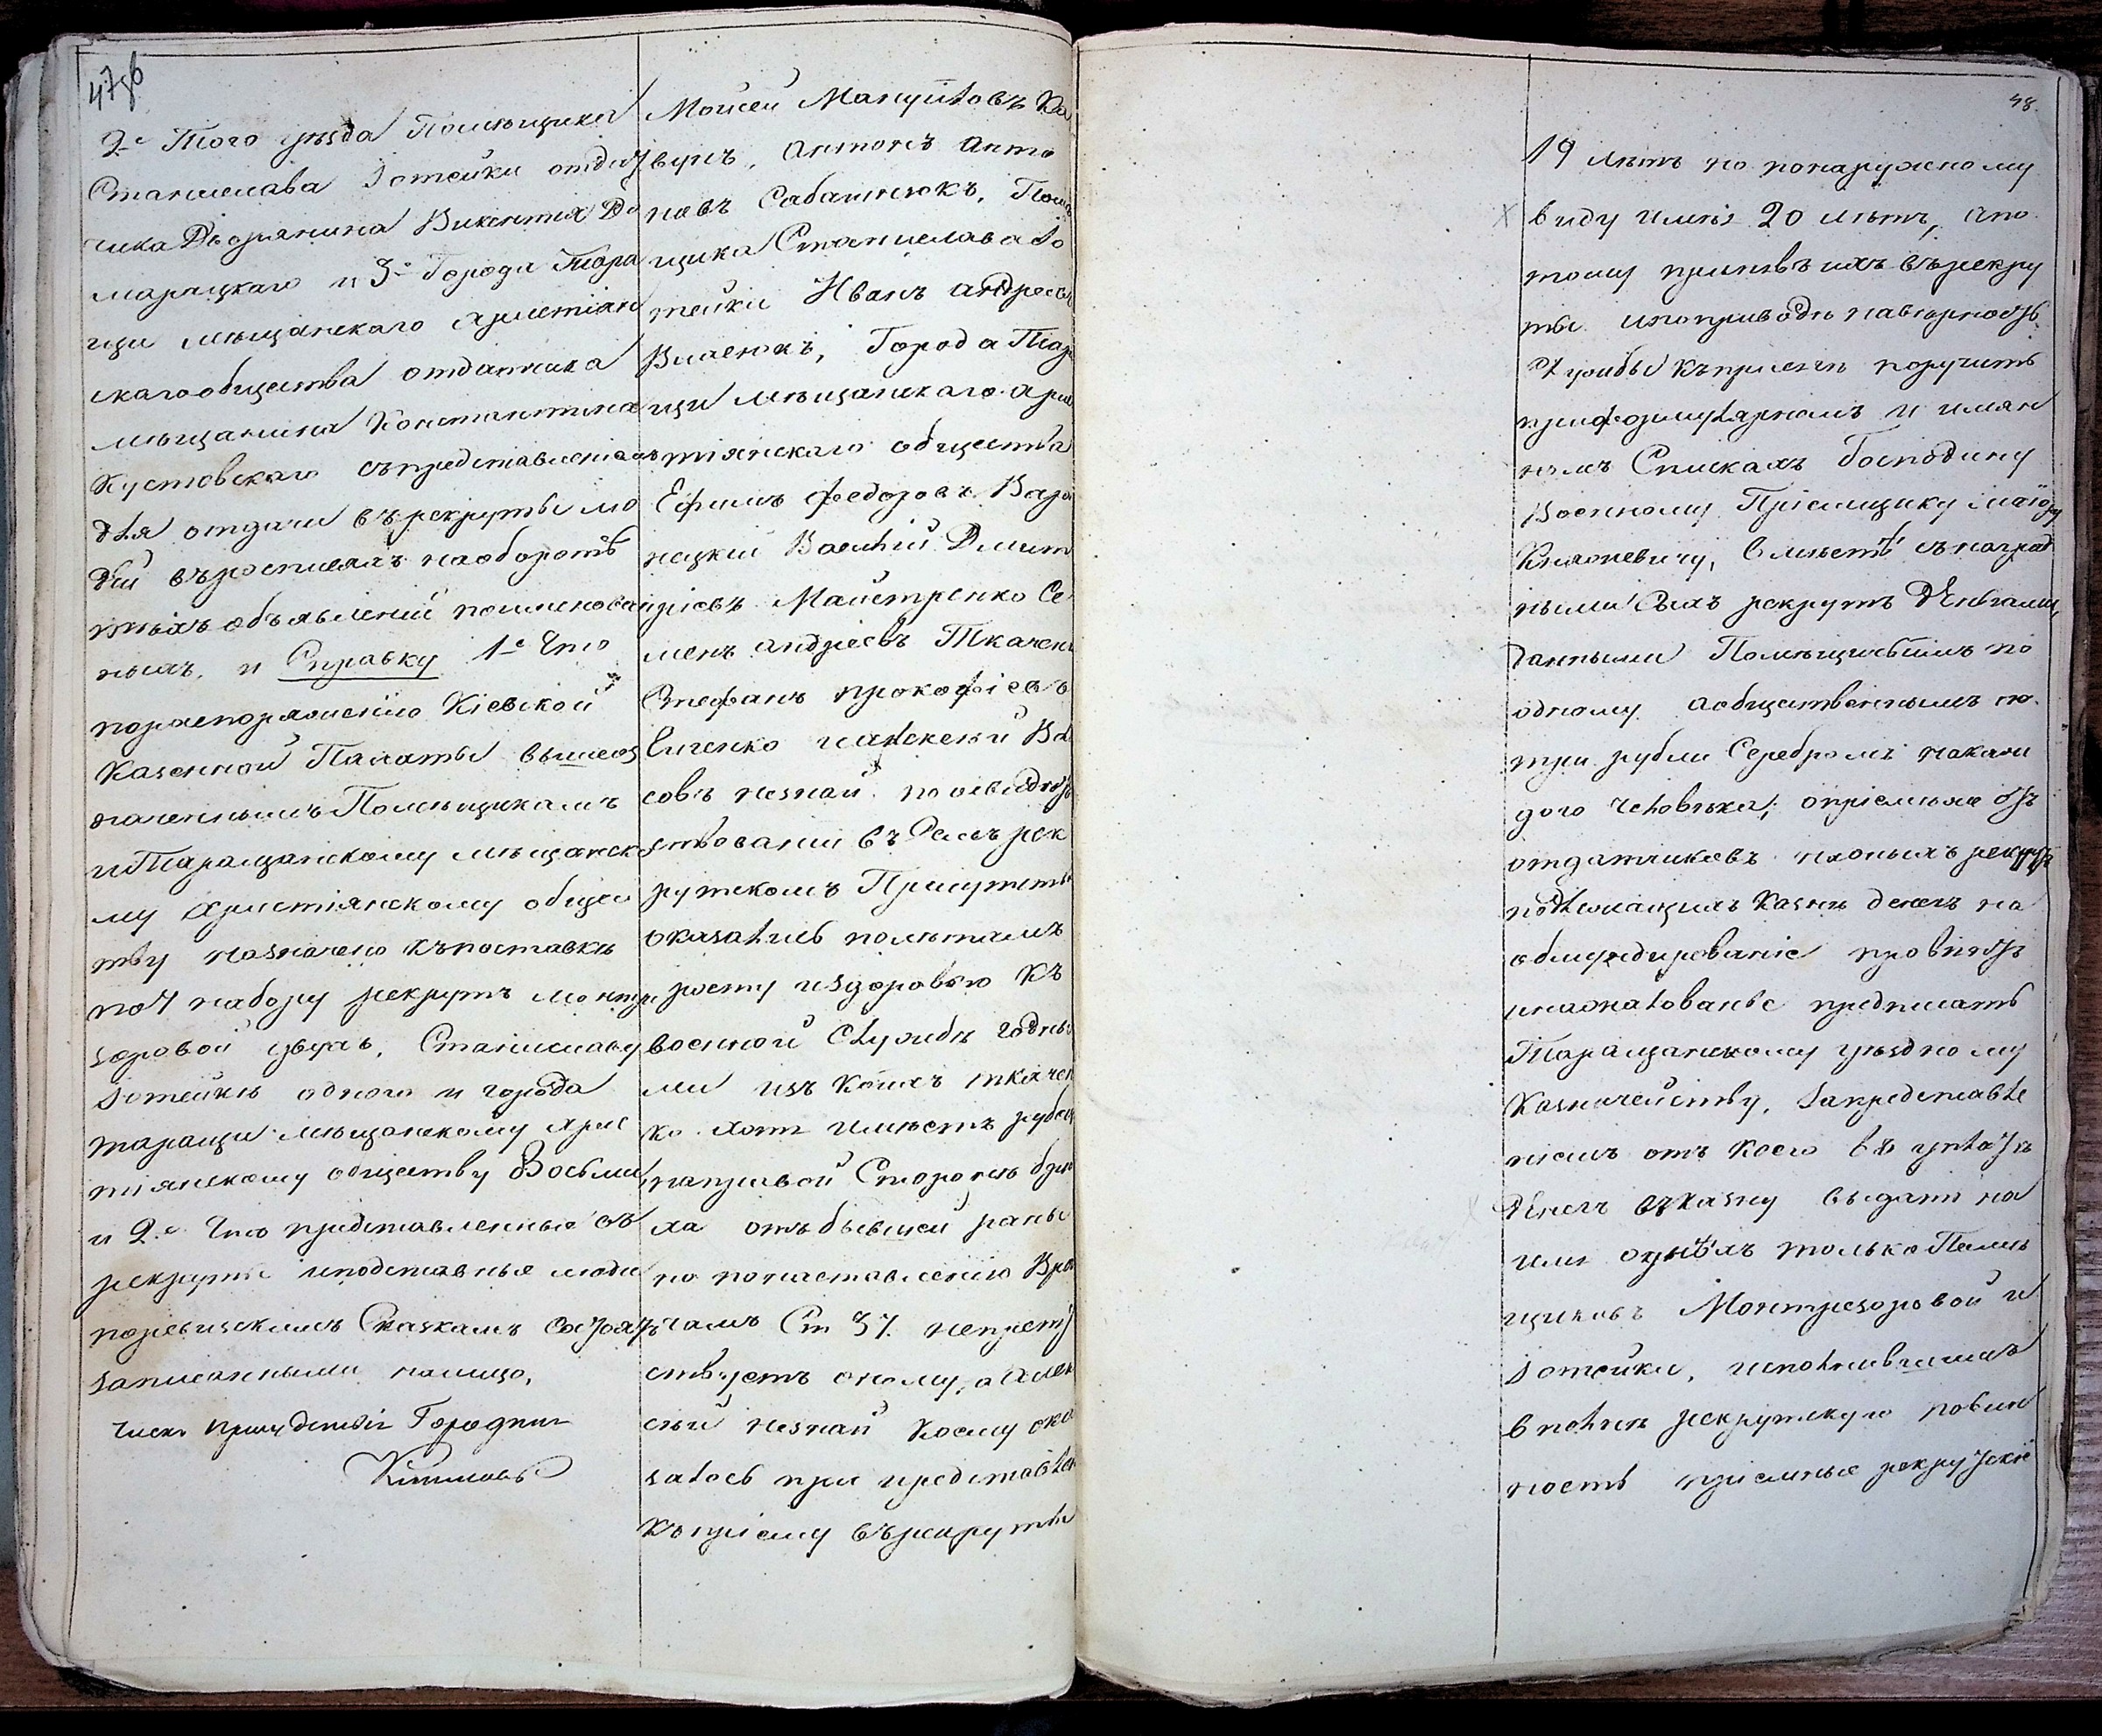 47об
2е Того уѣзда Помѣщика
Станислава Зотейки отдат
чика Дворянина Викентия До
марацкаго и 3е Города Тара
щи мѣщанскаго христіан
скаго общества отдатчика
мѣщанина Константина
Кустовскаго съ представленіемъ
для отдачи въ рекруты лю
дей въ росписяхъ на оборотѣ
ихъ объявленій поименован
ныхъ, и Справку 1е Что
по распоряженію Кіевской
Казенной Палаты вышеоз
наченнымъ Помѣщикамъ
и Таращанскому мѣщанско
му христіянскому общес
тву назначено къ поставкѣ
по 4 набору рекрутъ Монтре
зоровой двухъ, Станиславу
Зотейкѣ одного и города
таращи мѣщанскому хрис
тіянскому обществу Восьми,
и 2е Что представленные въ
рекруты и подставные люди
по ревизскимъ Сказкамъ состоятъ
записанными налицо,
Киселевъ
Моисей Мануйловъ Ка
вунъ, Антонъ Анто
новъ Сабатнюкъ, Помѣ
щика Станислава Зо
тейки Иванъ Андреевъ
Власюкъ, Города Тара
щи мѣщанскаго хрис
тіянскаго общества
Ефимъ Федоровъ Вар
нацкий Василій Дмит
ріевъ Майстренко Се
менъ Андреевъ Ткаченко
Стефанъ Прокофіевъ
совъ Незнай по освидѣтель
ствованіи въ Семъ рек
рутскомъ Присутствіи
оказались по лѣтамъ
росту и здоровью къ
военной Службѣ годны
ми изъ коихъ Ткачен
ко хотя имѣетъ рубецъ
на правой Сторонѣ брю
ха отъ бывшей раны
но по наставленію Вра
чамъ Ст 37. непрепят
ствуетъ оному, а Алек
сѣй Незнай коему ока
залось при представлен
къ пріему въ рекруты
48
19 лѣтъ но по наружному
X виду имѣя 20 лѣтъ, а по
тому принявъ ихъ въ рекру
ты и по приводѣ на вѣрность
Службы къ присягѣ поручить
при формулярномъ и имян
номъ Спискахъ Господину
Военному Пріемщику Маіору
Княжевичу, вмѣстѣ съ наград
ными Сихъ рекрутъ Деньгами,
данными Помѣщичьимъ по
одному а общественнымъ по
три рубли Серебромъ на каж
дого Человѣка; о пріемѣ отъ
отдатчиковъ на оныхъ рекрутъ
подлежащихъ Казнѣ денегъ на
обмундированіе провіянтъ
и на жалованье предписать
Таращанскому уѣздному
Казначейству, За представле
ніемъ отъ коего въ уплатѣ
X Денегъ въ казну выдать на
имя однѣхъ только Помѣ
щиковъ Монтрезоровой и
Зотейки, исполнившихъ
вполнѣ рекрутскую повин
ность пріемные рекрутскіе